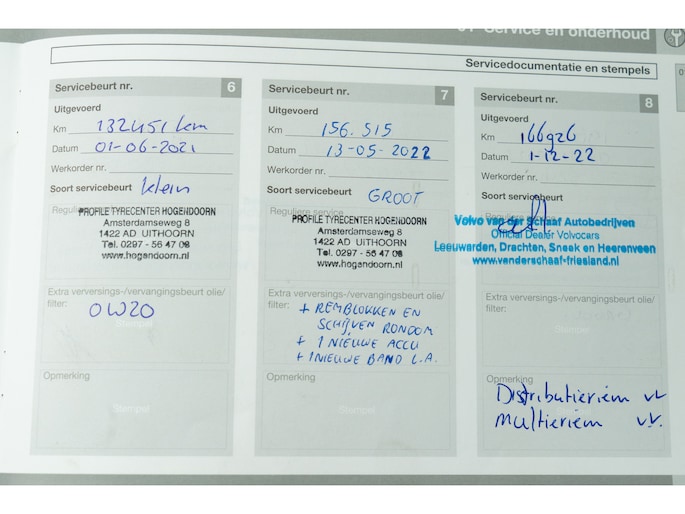 Service en onderhoud
Servicedocumentatie en stempels
Servicebeurt nr. 6
Uitgevoerd
Km 132451 km
Datum 01-06-2021
Werkorder nr.
Soort servicebeurt klein
Reguliere service
PROFILE TYRECENTER HOGENDOORN
Amsterdamseweg 8
1422 AD UITHOORN
Tel. 0297 - 56 47 08
www.hogendoorn.nl
Extra verversings-/vervangingsbeurt olie/
filter:
0W20
Stempel
Opmerking
Stempel
Servicebeurt nr. 7
Uitgevoerd
Km 156.515
Datum 13-05-2022
Werkorder nr.
Soort servicebeurt
GROOT
Reguliere service
PROFILE TYRECENTER HOGENDOORN
Amsterdamseweg 8
1422 AD UITHOORN
Tel. 0297 - 56 47 08
www.hogendoorn.nl
Extra verversings-/vervangingsbeurt olie/
filter:
+ REMBLOKKEN EN
SCHIJVEN RONDOM
+ 1 NIEUWE ACCU
+ 1 NIEUWE BAND L.A.
Opmerking
Stempel
Servicebeurt nr. 8
Uitgevoerd
Km 166926
Datum 1-12-22
Werkorder nr.
Soort servicebeurt
Volvo van der Schaaf Autobedrijven
Official Dealer Volvocars
Leeuwarden, Drachten, Sneek en Heerenveen
www.vanderschaaf-friesland.nl
Extra verversings-/vervangingsbeurt olie/
filter:
Stempel
Opmerking
Distributieriem vv
multieriem vv.